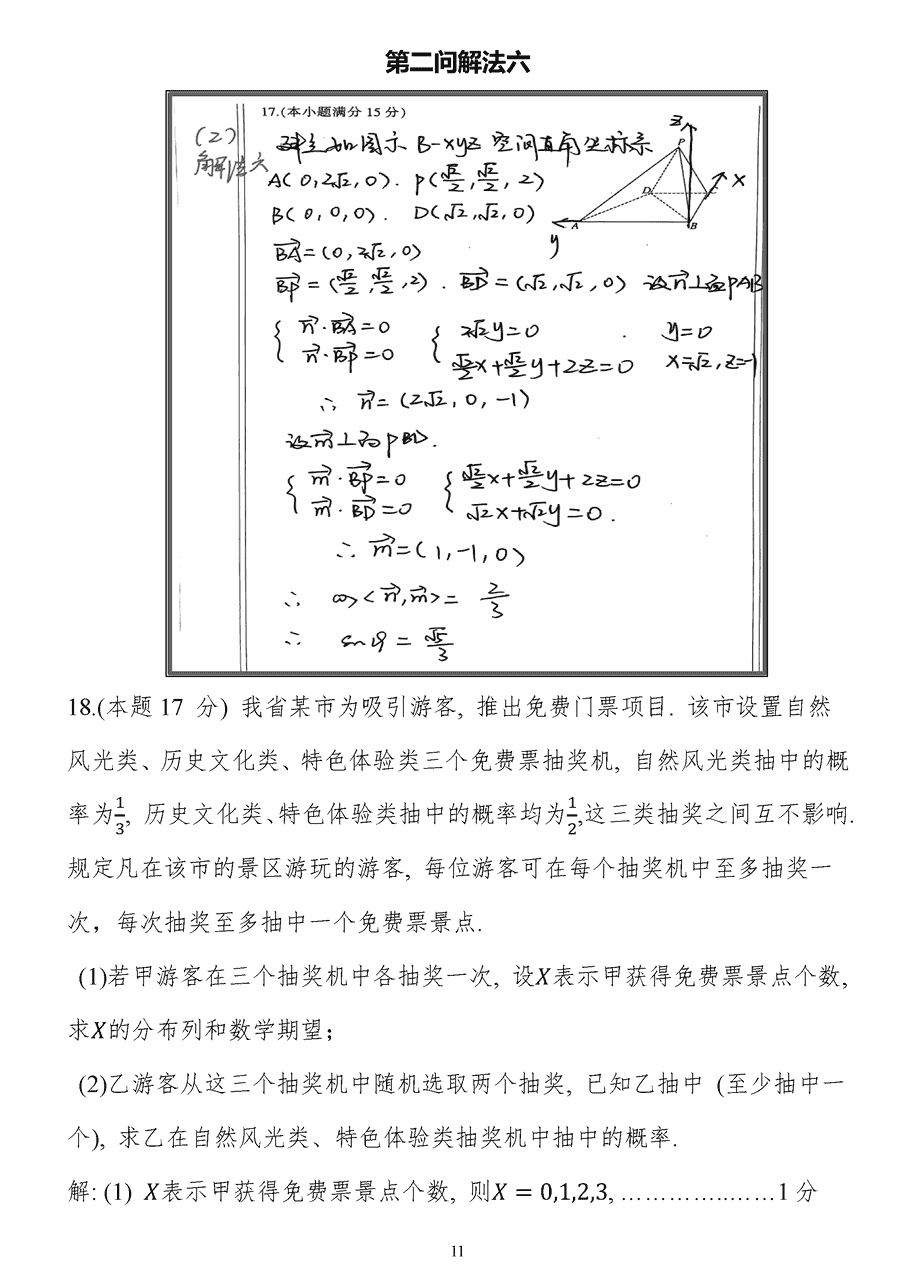 第二问解法六
17.(本小题满分15分)
(2)
解法六
建立如图示 B-xyz 空间直角坐标系
A(0,2√2,0). P(√2/2,√2/2,2)
B(0,0,0). D(√2,√2,0)
z
P
x
D
A
B
y
BA=(0,2√2,0)
BP=(√2/2,√2/2,2). BD=(√2,√2,0) 设n⊥面PAB
{ n·BA=0 { 2√2y=0 . y=0
n·BP=0 √2/2x+√2/2y+2z=0 x=√2,z=-1
∴ n=(2√2,0,-1)
设m⊥面PBD.
{ m·BP=0 { √2/2x+√2/2y+2z=0
m·BD=0 √2x+√2y=0.
∴ m=(1,-1,0)
∴ cos<n,m>=2/3
∴ sinθ=√5/3
18.(本题17 分) 我省某市为吸引游客, 推出免费门票项目. 该市设置自然
风光类、历史文化类、特色体验类三个免费票抽奖机, 自然风光类抽中的概
率为1/3, 历史文化类、特色体验类抽中的概率均为1/2,这三类抽奖之间互不影响.
规定凡在该市的景区游玩的游客, 每位游客可在每个抽奖机中至多抽奖一
次，每次抽奖至多抽中一个免费票景点.
(1)若甲游客在三个抽奖机中各抽奖一次, 设X表示甲获得免费票景点个数,
求X的分布列和数学期望；
(2)乙游客从这三个抽奖机中随机选取两个抽奖, 已知乙抽中 (至少抽中一
个), 求乙在自然风光类、特色体验类抽奖机中抽中的概率.
解: (1) X表示甲获得免费票景点个数, 则X = 0,1,2,3, …………………1 分
11